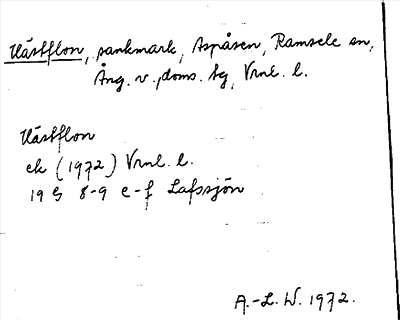 Hästflon, sankmark, Aspåsen, Ramsele sn,
Ång. v. doms. tg, Vrnl. l.
Hästflon
ek (1972) Vrnl. l.
19 G 8-9 e-f Lafssjön
A.-L. W. 1972.